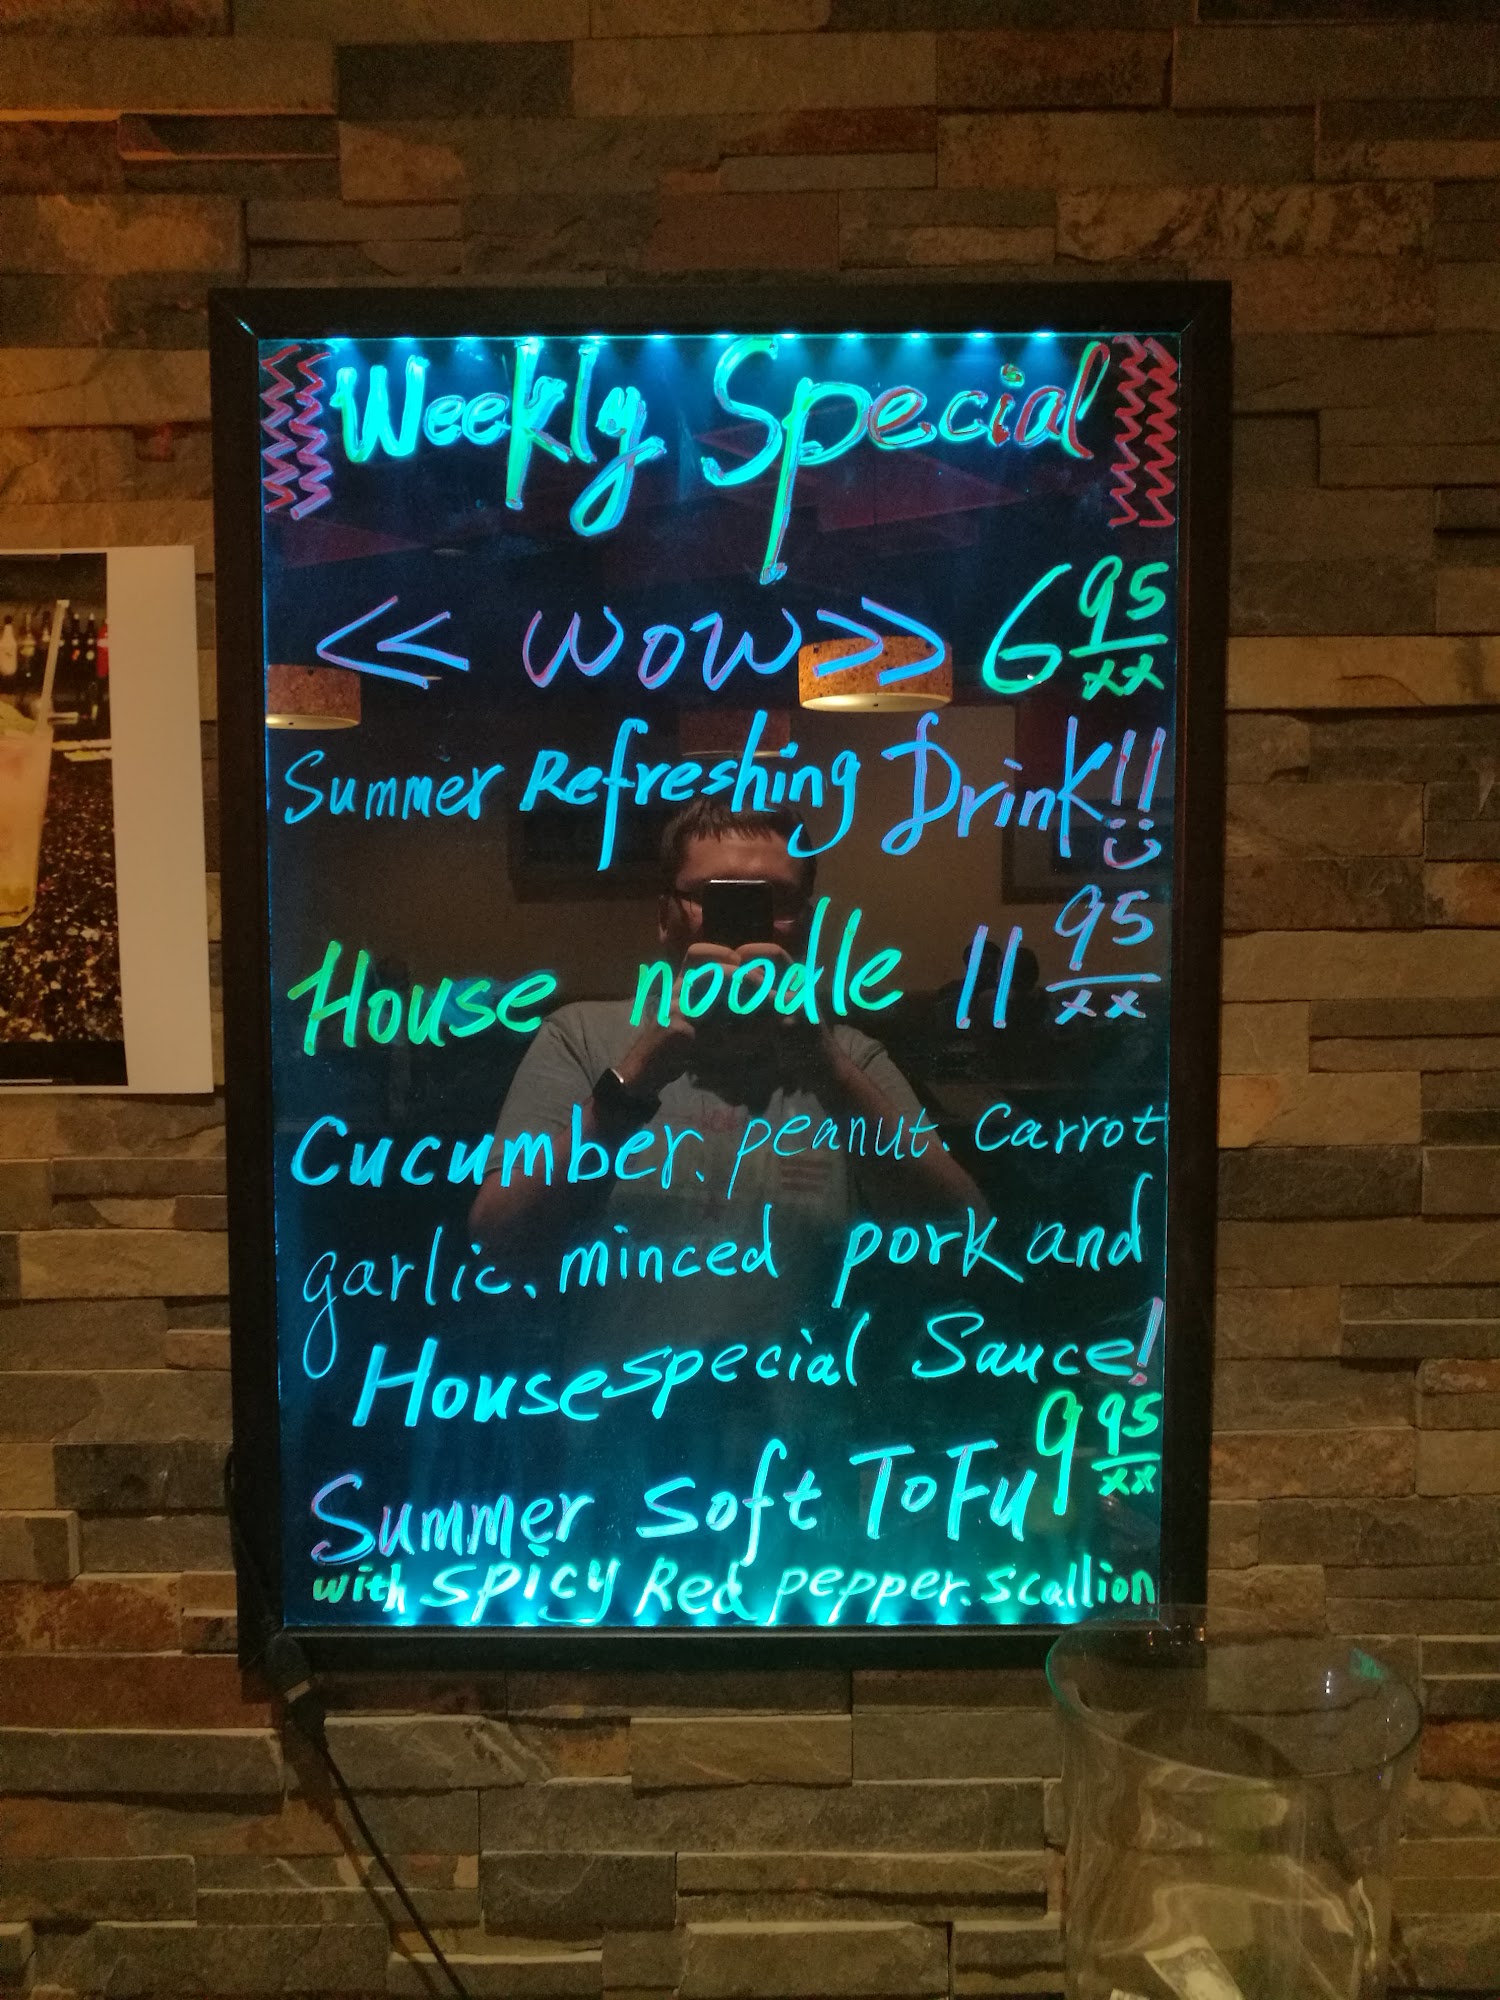 Weekly Special
<< WOW >> 6 95/xx
Summer Refreshing Drink!!
House noodle 11 95/xx
Cucumber、peanut、Carrot
garlic、minced pork and
House special Sauce!
Summer Soft ToFu 9 95/xx
with SPICY Red pepper、Scallion